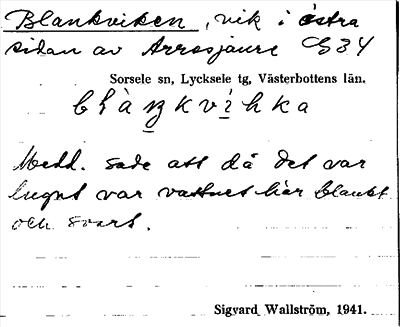 Blankviken, vik i östra
sidan av Arrosjaure G34
Sorsele sn, Lycksele tg, Västerbottens län.
Medd. sade att då det var
lugnt var vattnet här blankt
och svart.
Sigvard Wallström, 1941.